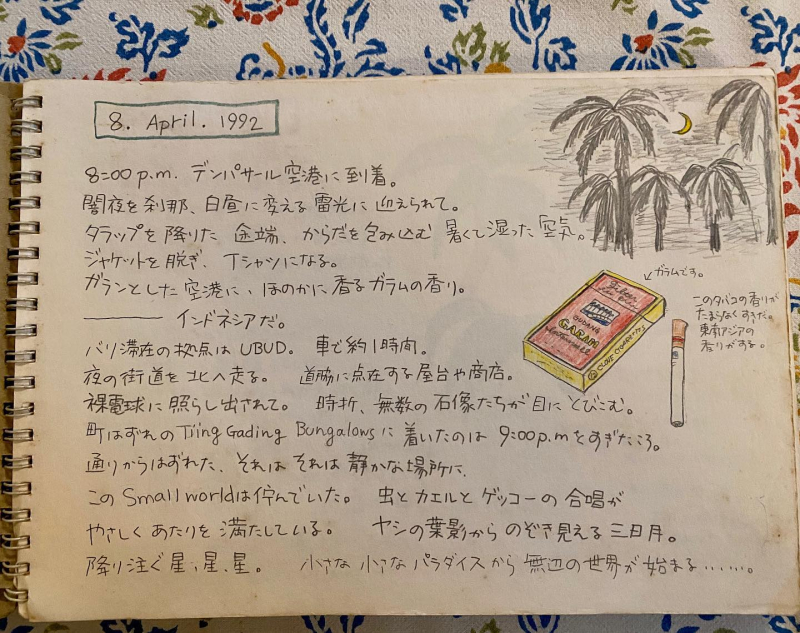 8. April. 1992
8:00 p.m. デンパサール空港に到着。
闇夜を刹那、白昼に変える雷光に迎えられて。
タラップを降りた途端、からだを包み込む暑くて湿った空気。
ジャケットを脱ぎ、Tシャツになる。
ガランとした空港に、ほのかに香るガラムの香り。
――― インドネシアだ。
バリ滞在の拠点はUBUD。 車で約1時間。
夜の街道を北へ走る。 道脇に点在する屋台や商店。
裸電球に照らし出されて。 時折、無数の石像たちが目にとびこむ。
町はずれのTiing Gading Bungalowsに着いたのは9:00p.mをすぎたころ。
通りからはずれた、それはそれは静かな場所に、
このSmall worldは佇んでいた。 虫とカエルとゲッコーの合唱が
やさしくあたりを満たしている。 ヤシの葉影からのぞき見える三日月。
降り注ぐ星、星、星。 小さな小さなパラダイスから無辺の世界が始まる……。
↙ガラムです。
このタバコの香りが
たまらなくすきだ。
東南アジアの
香りがする。
GUDANG
GARAM
CLOVE CIGARETTES